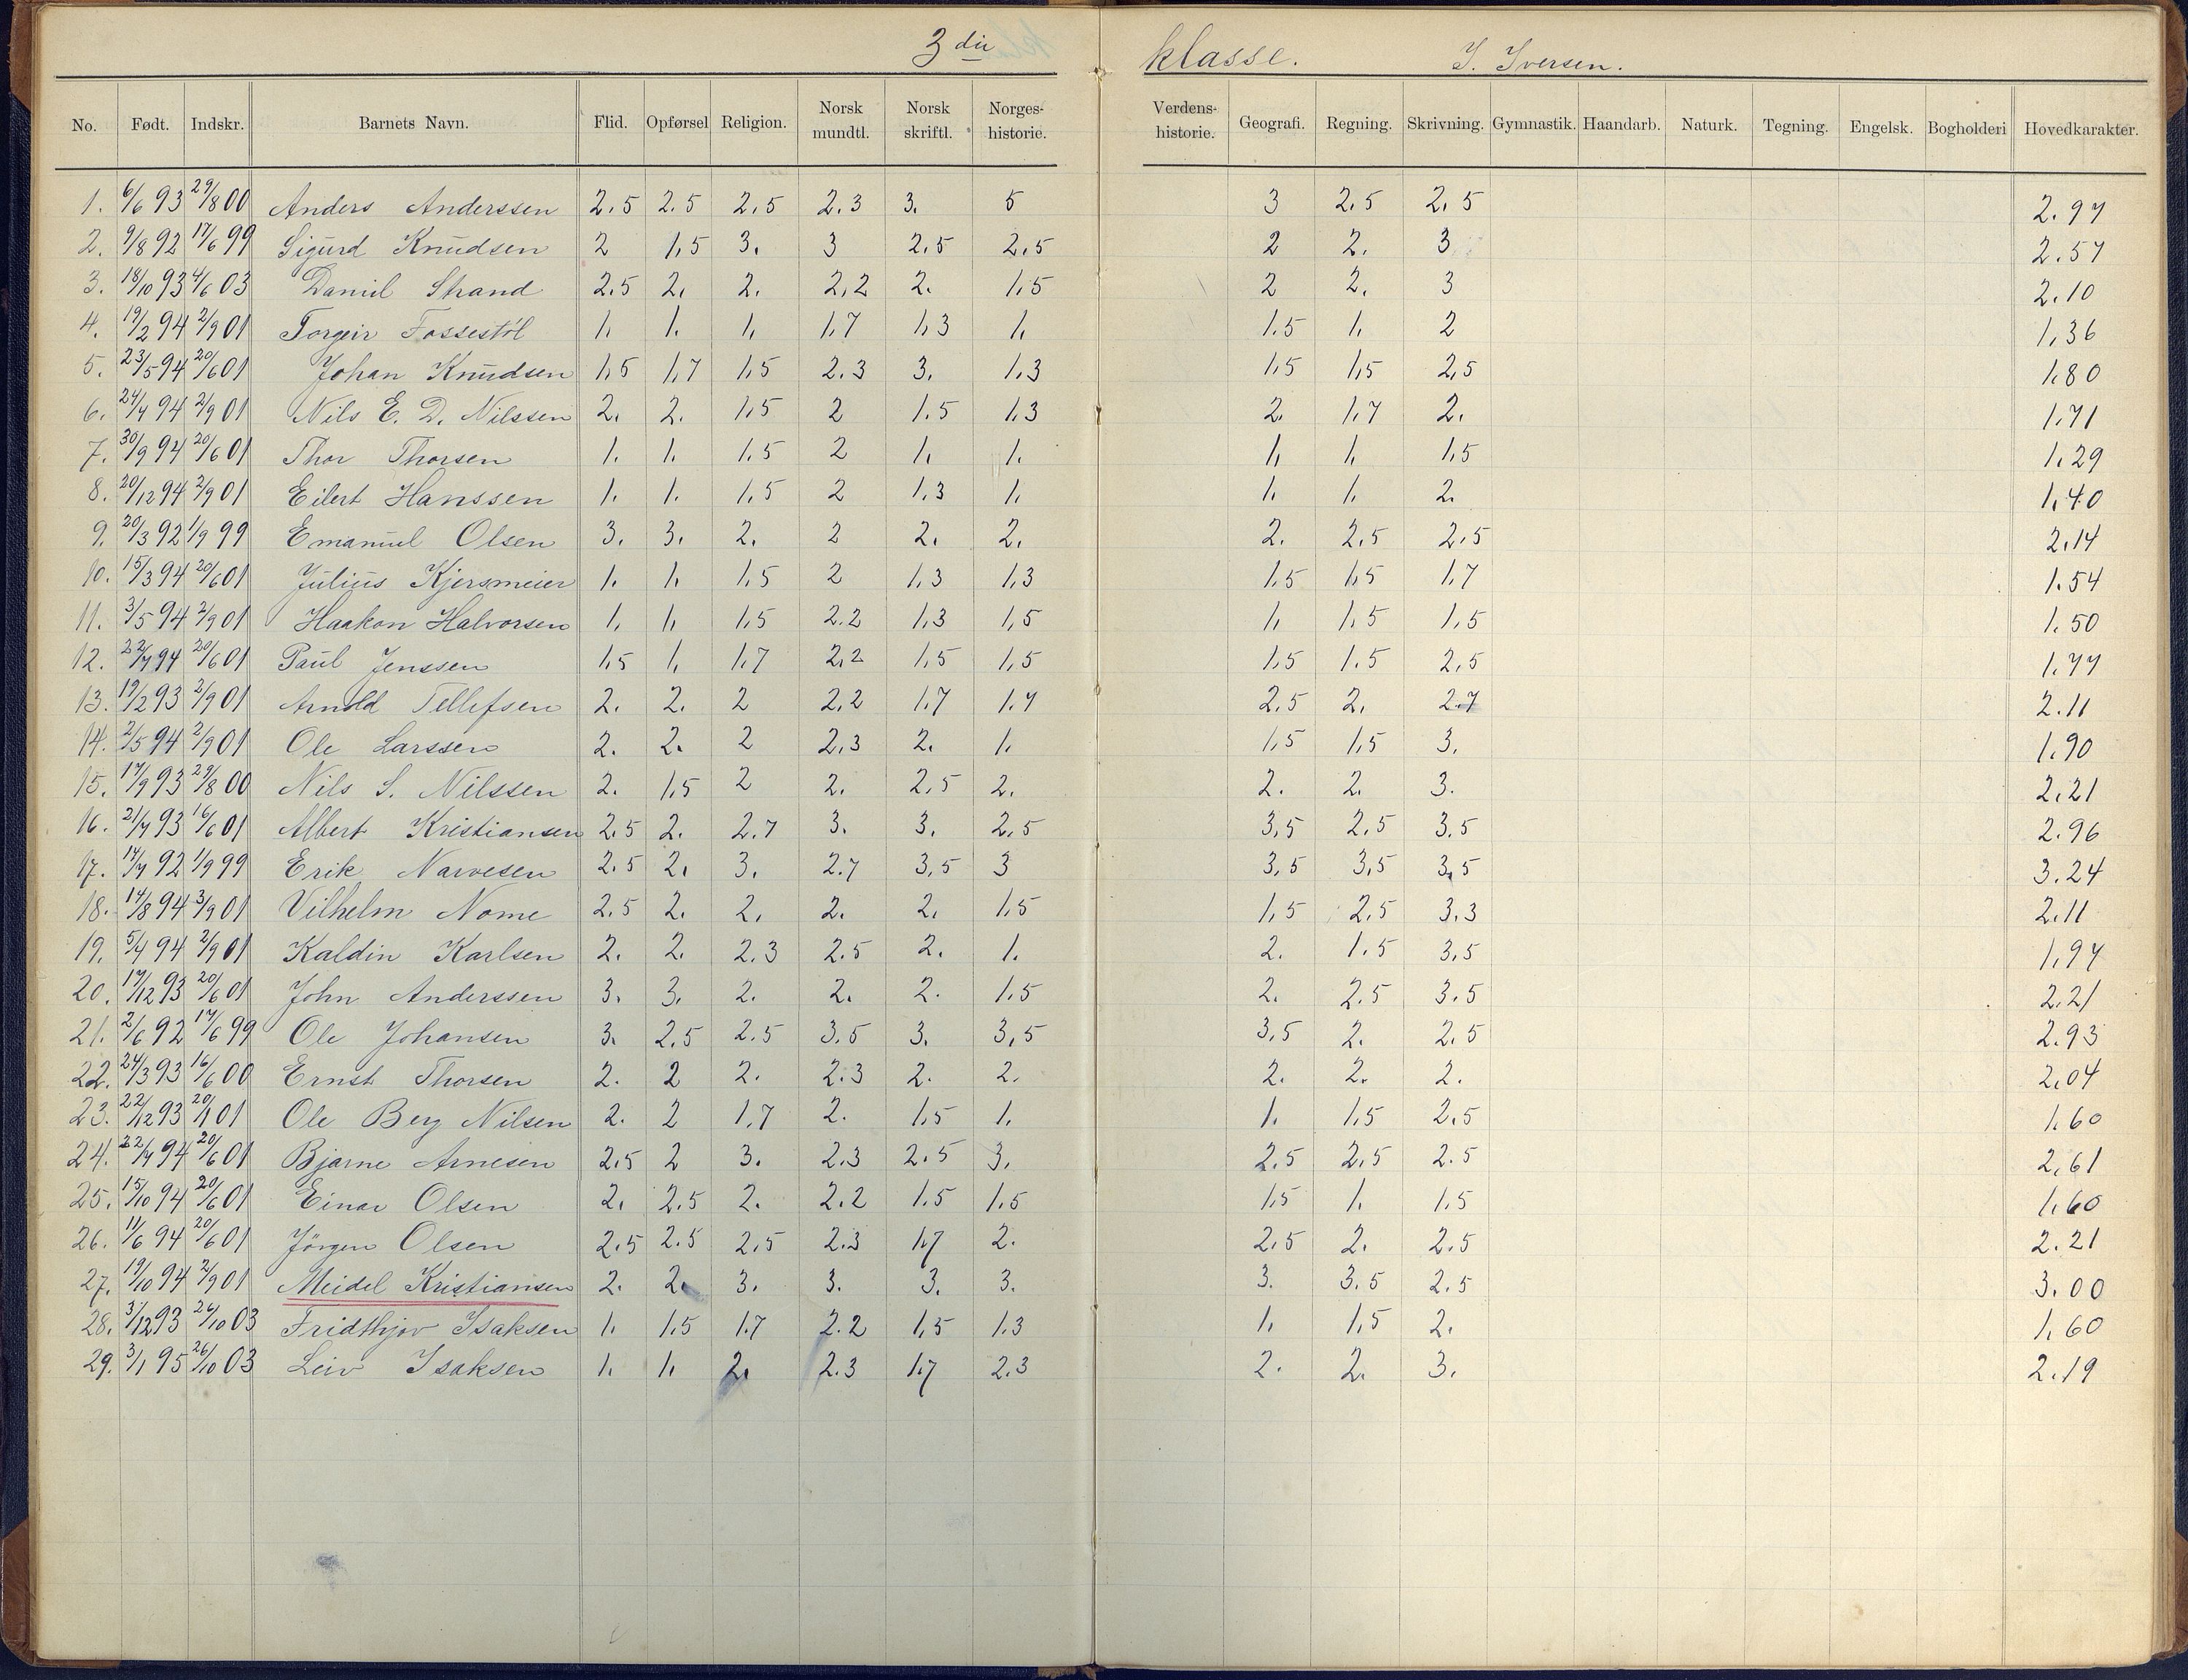 3die klasse. I. Iversen.
No. Født. Indskr. Barnets Navn. Flid. Opførsel Religion. Norsk mundtl. Norsk skriftl. Norges-historie. Verdens-historie. Geografi. Regning. Skrivning. Gymnastik. Haandarb. Naturk. Tegning. Engelsk. Bogholderi Hovedkarakter.
1. 6/6 93 29/8 00 Anders Anderssen 2,5 2.5 2,5 2.3 3. 5 3 2.5 2,5 2.97
2. 9/8 92 17/6 99 Sigurd Knudsen 2 1,5 3. 3 2.5 2,5 2 2. 3 2.57
3. 18/10 93 4/6 03 Daniel Strand 2.5 2, 2. 2,2 2. 1,5 2 2. 3 2.10
4. 19/2 94 2/9 01 Torgeir Fossestöl 1. 1. 1, 1,7 1,3 1. 1.5 1, 2 1,36
5. 23/5 94 20/6 01 Johan Knudsen 1,5 1,7 1,5 2.3 3. 1.3 1,5 1,5 2,5 1.80
6. 24/7 94 2/9 01 Nils E. D. Nilssen 2. 2. 1,5 2 1.5 1,3 2. 1.7 2. 1.71
7. 30/9 94 20/6 01 Thor Thorsen 1. 1. 1.5 2 1, 1. 1, 1, 1,5 1.29
8. 20/12 94 2/9 01 Eilert Hanssen 1. 1. 1,5 2 1,3 1, 1. 1. 2. 1.40
9. 20/3 92 1/9 99 Emanuel Olsen 3. 3. 2. 2 2. 2. 2. 2,5 2.5 2.14
10. 15/3 94 20/6 01 Julius Kjersmeier 1. 1. 1.5 2 1,3 1,3 1,5 1,5 1,7 1.54
11. 3/5 94 2/9 01 Haakon Halvorsen 1, 1, 1,5 2.2 1,3 1,5 1, 1,5 1,5 1.50
12. 22/7 94 20/6 01 Paul Jenssen 1,5 1, 1,7 2,2 1,5 1,5 1,5 1.5 2,5 1.77
13. 19/2 93 2/9 01 Arnold Tellefsen 2. 2. 2 2,2 1,7 1.7 2.5 2, 2.7 2.11
14. 2/5 94 2/9 01 Ole Larssen 2. 2. 2 2,3 2. 1. 1,5 1,5 3. 1.90
15. 17/9 93 29/8 00 Nils S. Nilssen 2. 1.5 2 2. 2,5 2. 2. 2. 3. 2.21
16. 21/7 93 16/6 01 Albert Kristiansen 2,5 2. 2.7 3. 3. 2,5 3,5 2.5 3.5 2.96
17. 14/7 92 1/9 99 Erik Narvesen 2.5 2, 3. 2.7 3,5 3 3,5 3,5 3,5 3.24
18. 14/8 94 3/9 01 Vilhelm Nome 2.5 2. 2, 2. 2, 1,5 1,5 2,5 3,3 2.11
19. 5/4 94 2/9 01 Kaldin Karlsen 2. 2. 2.3 2.5 2. 1. 2. 1.5 3,5 1,97
20. 17/12 93 20/6 01 John Anderssen 3. 3. 2. 2. 2. 1.5 2. 2.5 3.5 2.21
21. 2/6 92 17/6 99 Ole Johansen 3. 2,5 2.5 3.5 3. 3,5 3,5 2. 2.5 2.93
22. 24/3 93 16/6 00 Ernst Thorsen 2. 2 2. 2.3 2. 2. 2. 2. 2. 2,04
23. 22/12 93 20/1 01 Ole Berg Nilsen 2. 2 1,7 2. 1,5 1. 1. 1,5 2.5 1.60
24. 22/7 94 20/6 01 Bjarne Arnesen 2,5 2 3. 2.3 2.5 3. 2.5 2,5 2.5 2,61
25. 15/10 94 20/6 01 Einar Olsen 2, 2.5 2. 2.2 1.5 1.5 1,5 1. 1,5 1.60
26. 11/6 94 20/6 01 Jörgen Olsen 2.5 2.5 2,5 2.3 1,7 2. 2,5 2. 2.5 2.21
27. 19/10 94 2/9 01 Meidel Kristiansen 2. 2. 3. 3. 3. 3. 3. 3.5 2.5 3.00
28. 31/12 93 26/10 03 Fridthjov Isaksen 1. 1.5 1.7 2.2 1,5 1.3 1, 1,5 2. 1.60
29. 3/1 95 26/10 03 Leiv Isaksen 1. 1. 2. 2.3 1.7 2.3 2. 2. 3. 2.19